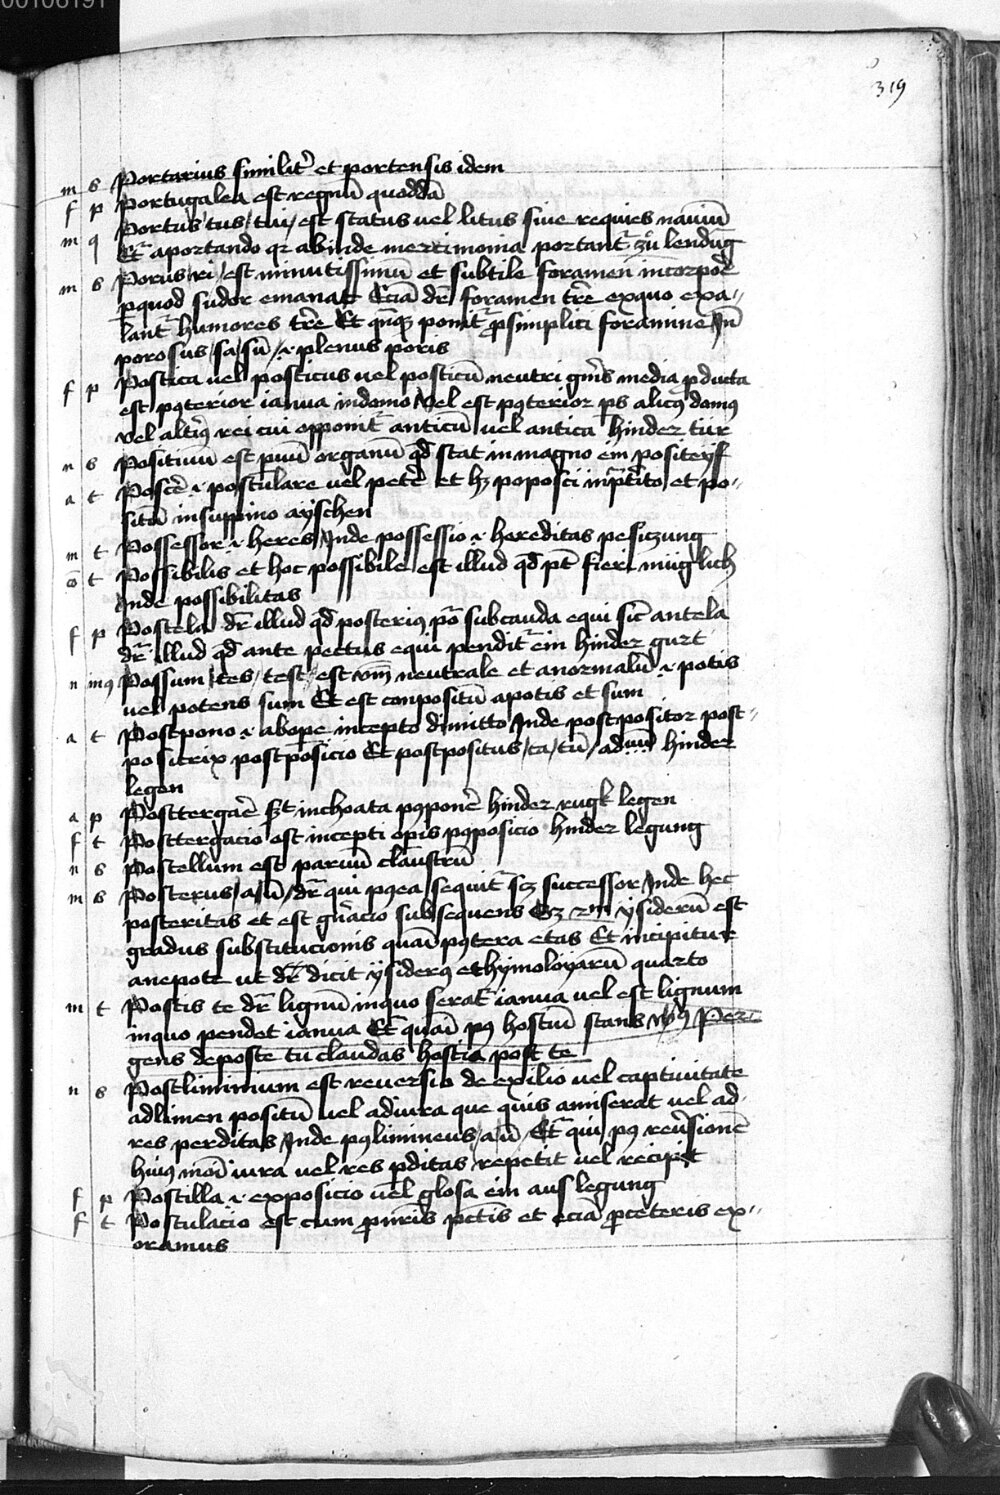 00106191
319
m s Portarius similit̾ et portensis idem
f p Portugalea est regnū quoddā
m q Portus / tus / tui / est status vel litus siue requies nauiū
Et̄ aportando qr abinde mercimonia portant̄ zů lendūg
m s Porus / ri / est minutissimū et subtile foramen incorpoē
pquod sudor emanat Eciā dr̄ foramen tr̄e exquo exa„
lant̄ humores tr̄e Et qn̄q ponit̄ psimplici foramine Jn̄
porosus / sa / sū / .i. plenus poris
f p Postica vel posticus vel posticū neutri gn̄is media pducta
est pꝰterior ianua indomo Vel est pꝰterior ps alicꝰ domꝰ
vel altiꝰ rei cui opponit̄ anticū vel antica hinder tür
n s Positiuū est puū organū qd stat in magno ein positeyf
a t Poscē .i. postulare vel petē et hꝫ poposci inp̄tito et po„
sitū insuppino ayschen
m t Possessor .i. heres Jnde possessio .i. hereditas pesiczung
o t Possibilis et hoc possibile est illud qd pt̄ fieri müglich
Jnde possibilitas
f p Postela dr̄ illud qd posteriꝰ pō subcauda equi sic̄ antela
dr̄ illud qd ante pectus equi pendit̄ ein hinder gurt
n inꝰ Possum / tes / test / est vm̄ neutrale et anormalū .i. potis
vel potens sum Et est conpositū apotis et sum
a t Postpono .i. abope incepto dimitto Jnde postpositor post„
positrix postposicio Et postpositus / ta / tū / aduū hinder
legen
a p Posttergaē st̄ inchoata pꝰponē hinder rugk legen
f t Posttergacio est incepti opis pꝰposicio hinder legung
n s Postellum est paruū claustrū
m s Posterus / a / ū / dr̄ qui pꝰea sequit̄ scꝫ successor Jnde hec
posteritas et est gn̄acio subsequens Sꝫ ysiderū est
gradus substitucionis quāi pꝰtera etas Et incipitur
anepote ut dr̄ dicit ysiderꝰ ethymoloyarū quarto
m t Postis te dr̄ lignū inquo serat̄ ianua vel est lignum
inquo pendet ianua Et quāi pꝰ hostiū stans Peri
gens deposte tu claudas hostia post te
n s Postliminium est reuersio de exilio vel captiuitate
adlimen positū vel adiura que quis amiserat vel ad
res perditas Jnde pꝰlimineus / a / ū / Et̄ qui pꝰ reūsionē
huiꝰ mōi iura vel res pditas repetit vel recipit
f p Postilla .i. exposicio vel glosa ein aus legung
f t Postulacio est cum et ecia pceteris ex„
oramus